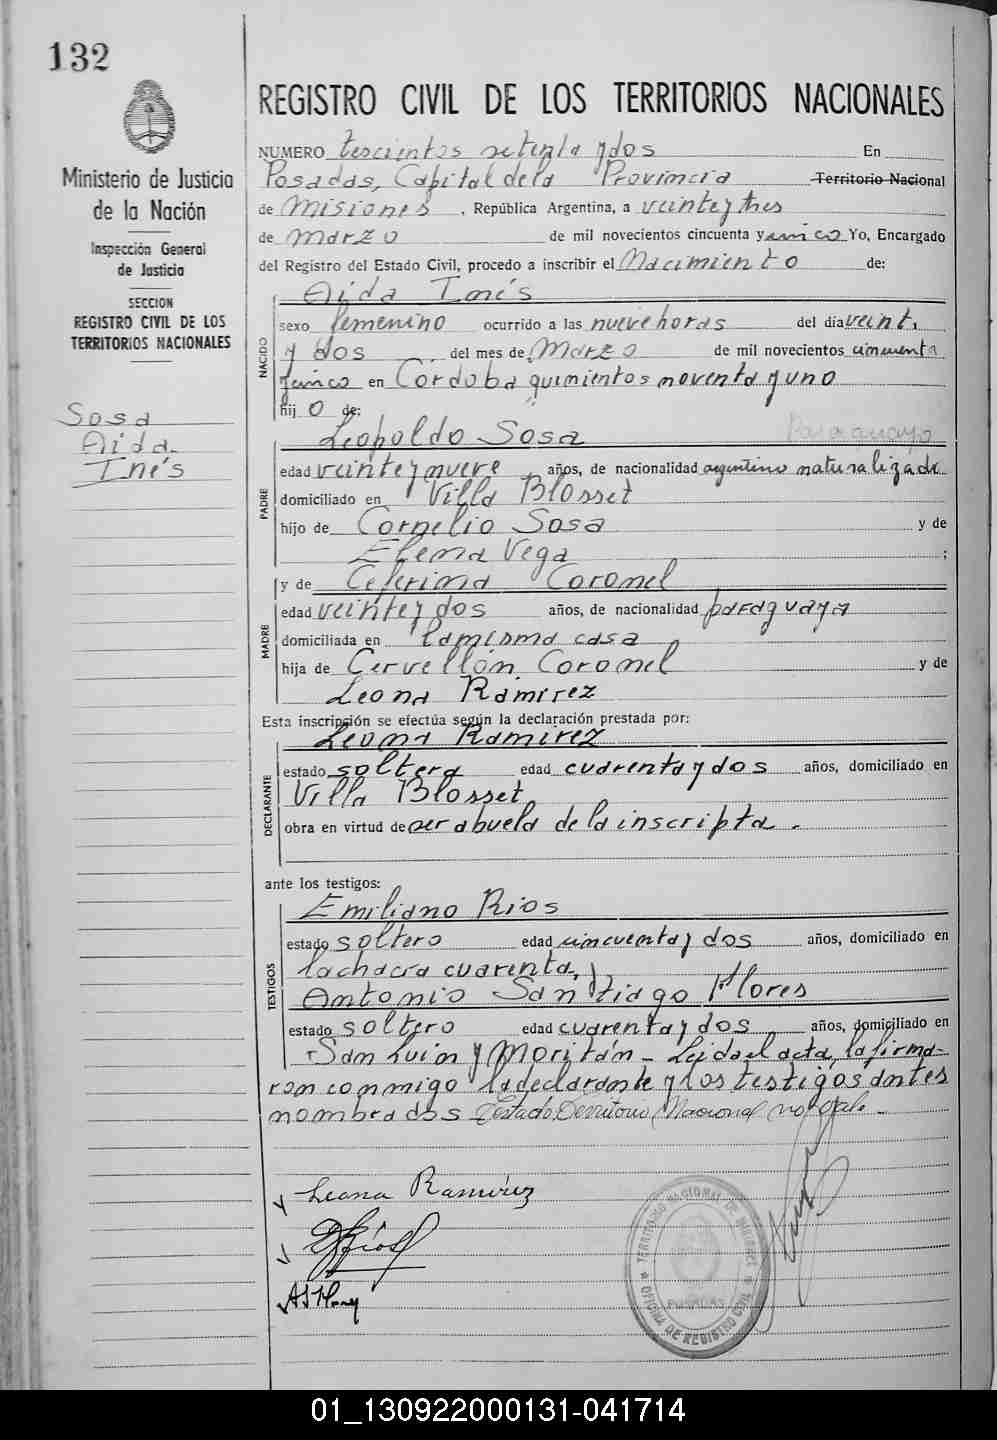 132
Ministerio de Justicia
de la Nación
Inspección General
de Justicia
SECCION
REGISTRO CIVIL DE LOS
TERRITORIOS NACIONALES
Sosa
Aida
Inés
REGISTRO CIVIL DE LOS TERRITORIOS NACIONALES
NUMERO trescientos setenta y dos En
Posadas, Capital de la Provincia Territorio Nacional
de Misiones, República Argentina, a veinte y tres
de Marzo de mil novecientos cincuenta y cinco Yo, Encargado
del Registro del Estado Civil, procedo a inscribir el Nacimiento de:
NACIDO
Aida Inés
sexo femenino ocurrido a las nueve horas del día veint.
y dos del mes de Marzo de mil novecientos cincuenta
y cinco en Córdoba quinientos noventa y uno
hij o de:
PADRE
Leopoldo Sosa Paraguayo
edad veinte y nueve años, de nacionalidad argentino naturalizado
domiciliado en Villa Blosset
hijo de Cornelio Sosa y de
Elena Vega ;
MADRE
y de Ceferina Coronel
edad veinte y dos años, de nacionalidad paraguaya
domiciliada en la misma casa
hija de Cervellón Coronel y de
Leona Ramirez
Esta inscripción se efectúa según la declaración prestada por:
DECLARANTE
Leona Ramirez
estado soltera edad cuarenta y dos años, domiciliado en
Villa Blosset
obra en virtud de ser abuela de la inscripta.
ante los testigos:
TESTIGOS
Emiliano Rios
estado soltero edad cincuenta y dos años, domiciliado en
la chacra cuarenta,
Antonio Santiago Flores
estado soltero edad cuarenta y dos años, domiciliado en
San Luis y Moritán - Leida el acta, la firma-
ron conmigo la declarante y los testigos antes
nombrados Testado Territorio Nacional no vale.
Leona Ramirez
ERios
ASFlores
TERRITORIO NACIONAL DE MISIONES
POSADAS
OFICINA DE REGISTRO CIVIL
01_130922000131-041714